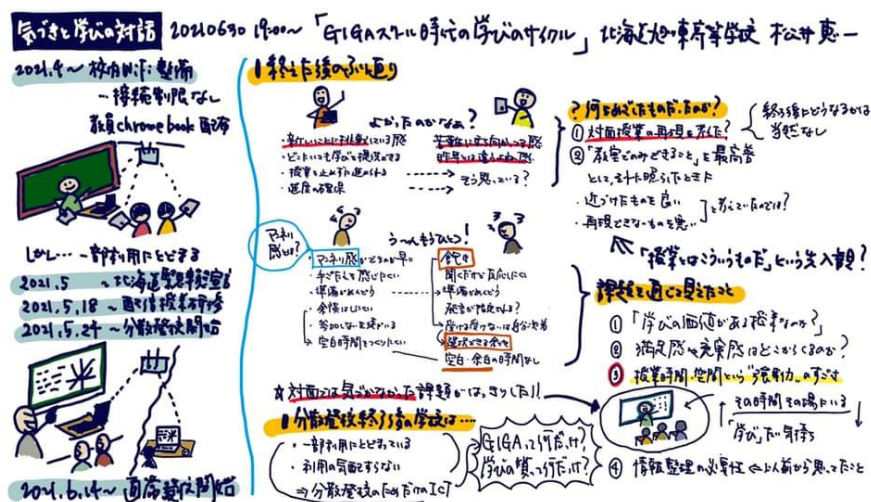 気づきと学びの対話 20210630 19:00～「GIGAスクール時代の学びのサイクル」北海道旭川東高等学校 松井恵一
2021.4～校内Wi-Fi整備
…接続制限なし
教員chromebook配布
しかし…一部利用にとどまる
2021.5 ～北海道緊急事態宣言
2021.5.18～配信授業研修
2021.5.24～分散登校開始
2021.6.14～通常登校開始
終えた後のふり返り
よかったのかなぁ?
・新しいことに挑戦している感
・どこにいても学びを提供できる
・授業を止めずに進められる
・進度の確保
苦難に立ち向かってる感
昨年とは違うよね感
そう思っている?
マンネリ感とは?
う～んもうひとつ!
・マンネリ感がくるのが早い
・手ごたえを感じにくい
・準備がめんどう
・余裕はない
→空白時間をつくりたい
・余白
聞くだけで反応しにくい
→準備がめんどう
発言が限定される?
→受ける受けないは自分次第
選択できる余地
空白・余白の時間なし
☆対面では気づかなかった課題がはっきりした!!
分散登校終了後の学校は…
・一部利用にとどまっている
・利用の気配すらない
⇒分散登校のためだけのICT
GIGAってそうだっけ?
学びの質ってそうだっけ?
?何をめざしたものだったのか?
① 対面授業の再現を考えた?
終了後にどうなるかは
当然なし
② 「教室でのみできること」を最高善
として、それに照らしたときに
・近づけたものを良い
・再現できないものを悪い
と考えていたのでは?
「授業とはこういうものだ」という先入観?
課題を通じて見えたこと
① 「学びの価値がある授業なのか?」
② 満足感や充実感はどこからくるのか?
③ 授業時間・空間という"強制力"のすごさ
その時間その場にいる
「学び」だ気持ち
④ 情報整理の必要性←以前から思ってたこと